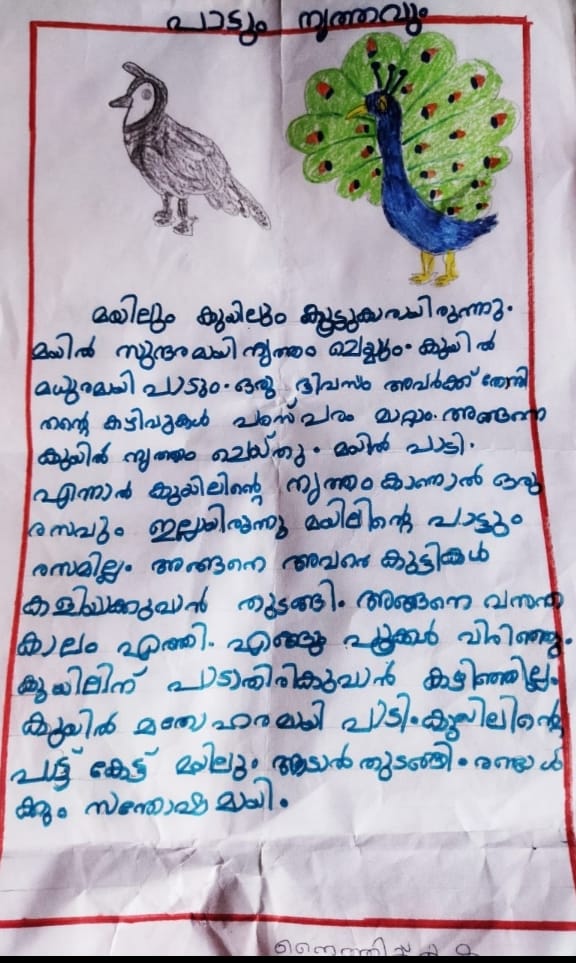 പാട്ടും നൃത്തവും
മയിലും കുയിലും കൂട്ടുകാരായിരുന്നു.
മയിൽ സുന്ദരമായി നൃത്തം ചെയ്യും. കുയിൽ
മധുരമായി പാടും. ഒരു ദിവസം അവർക്ക് തോന്നി
തന്റെ കഴിവുകൾ പരസ്പരം മാറ്റാം. അങ്ങനെ
കുയിൽ നൃത്തം ചെയ്തു. മയിൽ പാട്ടി.
എന്നാൽ കുയിലിന്റെ നൃത്തം കാണാൻ ഒരു
രസവും ഇല്ലായിരുന്നു മയിലിന്റെ പാട്ടും
രസമില്ല. അങ്ങനെ അവരെ കുട്ടികൾ
കളിയാക്കുവാൻ തുടങ്ങി. അങ്ങനെ വസന്ത
കാലം എത്തി. എങ്ങും പൂക്കൾ വിരിഞ്ഞു.
കുയിലിന് പാടാതിരികുവാൻ കഴിഞ്ഞില്ല.
കുയിൽ മനോഹരമായി പാടി. കുയിലിന്റെ
പാട്ട് കേട്ട് മയിലും ആടാൻ തുടങ്ങി. രണ്ടാൾ
ക്കും സന്തോഷമായി.